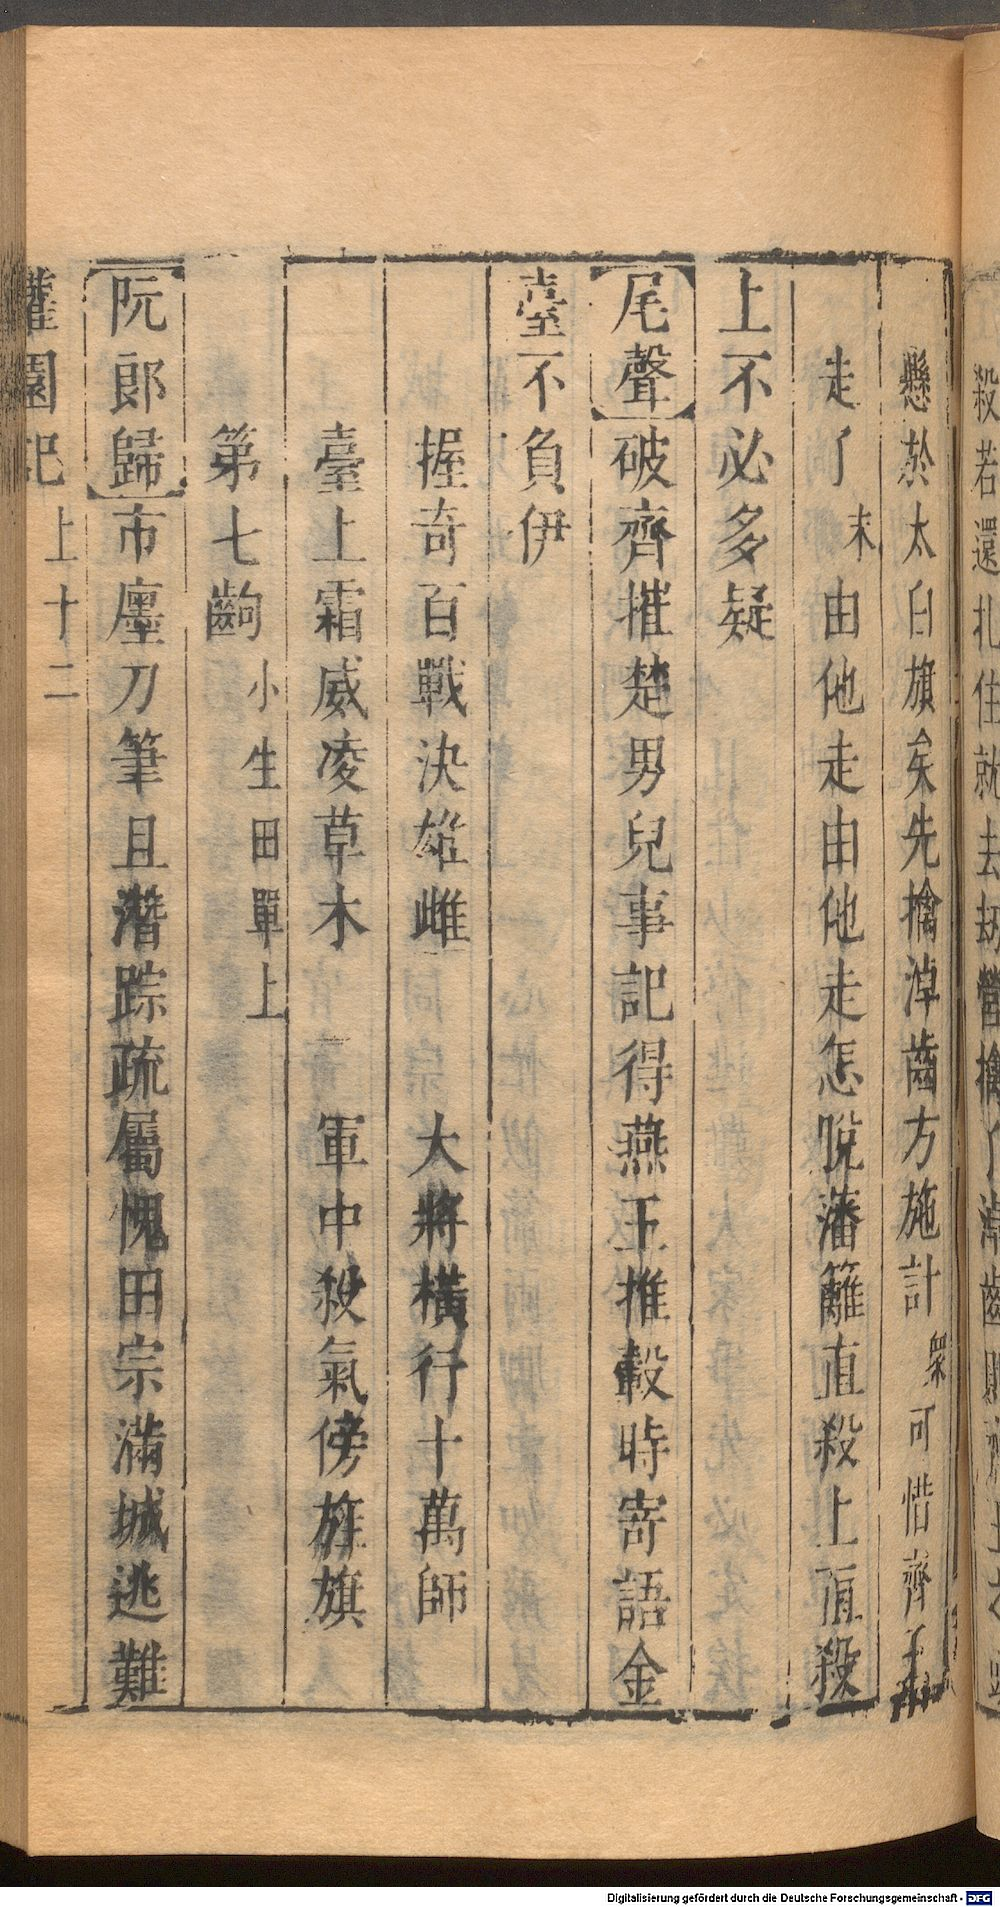 殺若還扎住就去刼營擒了淖齒
懸於太白旗矣先擒淖齒方施計衆可惜齊王
走了末由他走由他走怎脫藩籬直殺上直殺
上不必多疑
尾聲破齊摧楚男兒事記得燕王推轂時寄語金
臺不負伊
握奇百戰決雄雌 大將橫行十萬師
臺上霜威凌草木 軍中殺氣傍旌旗
第七齣小生田單上
阮郎歸市廛刀筆且潛踪疏屬愧田宗滿城逃難
灌園記 上 十二
Digitalisierung gefördert durch die Deutsche Forschungsgemeinschaft - DFG